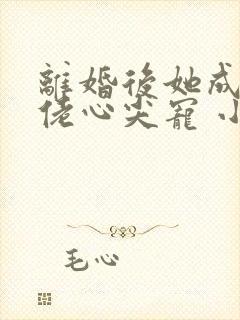 離婚後她成
佬心尖寵 小
毛心